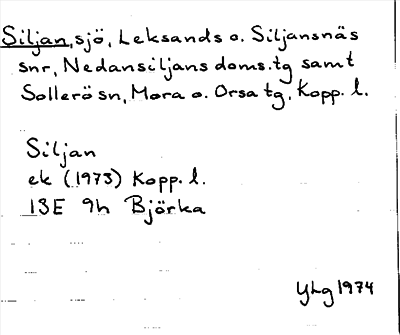 Siljan, sjö, Leksands o. Siljansnäs
snr, Nedansiljans doms.tg samt
Sollerö sn, Mora o. Orsa tg, Kopp. l.
Siljan
ek (1973) Kopp. l.
13E 9h Björka
YLg 1974